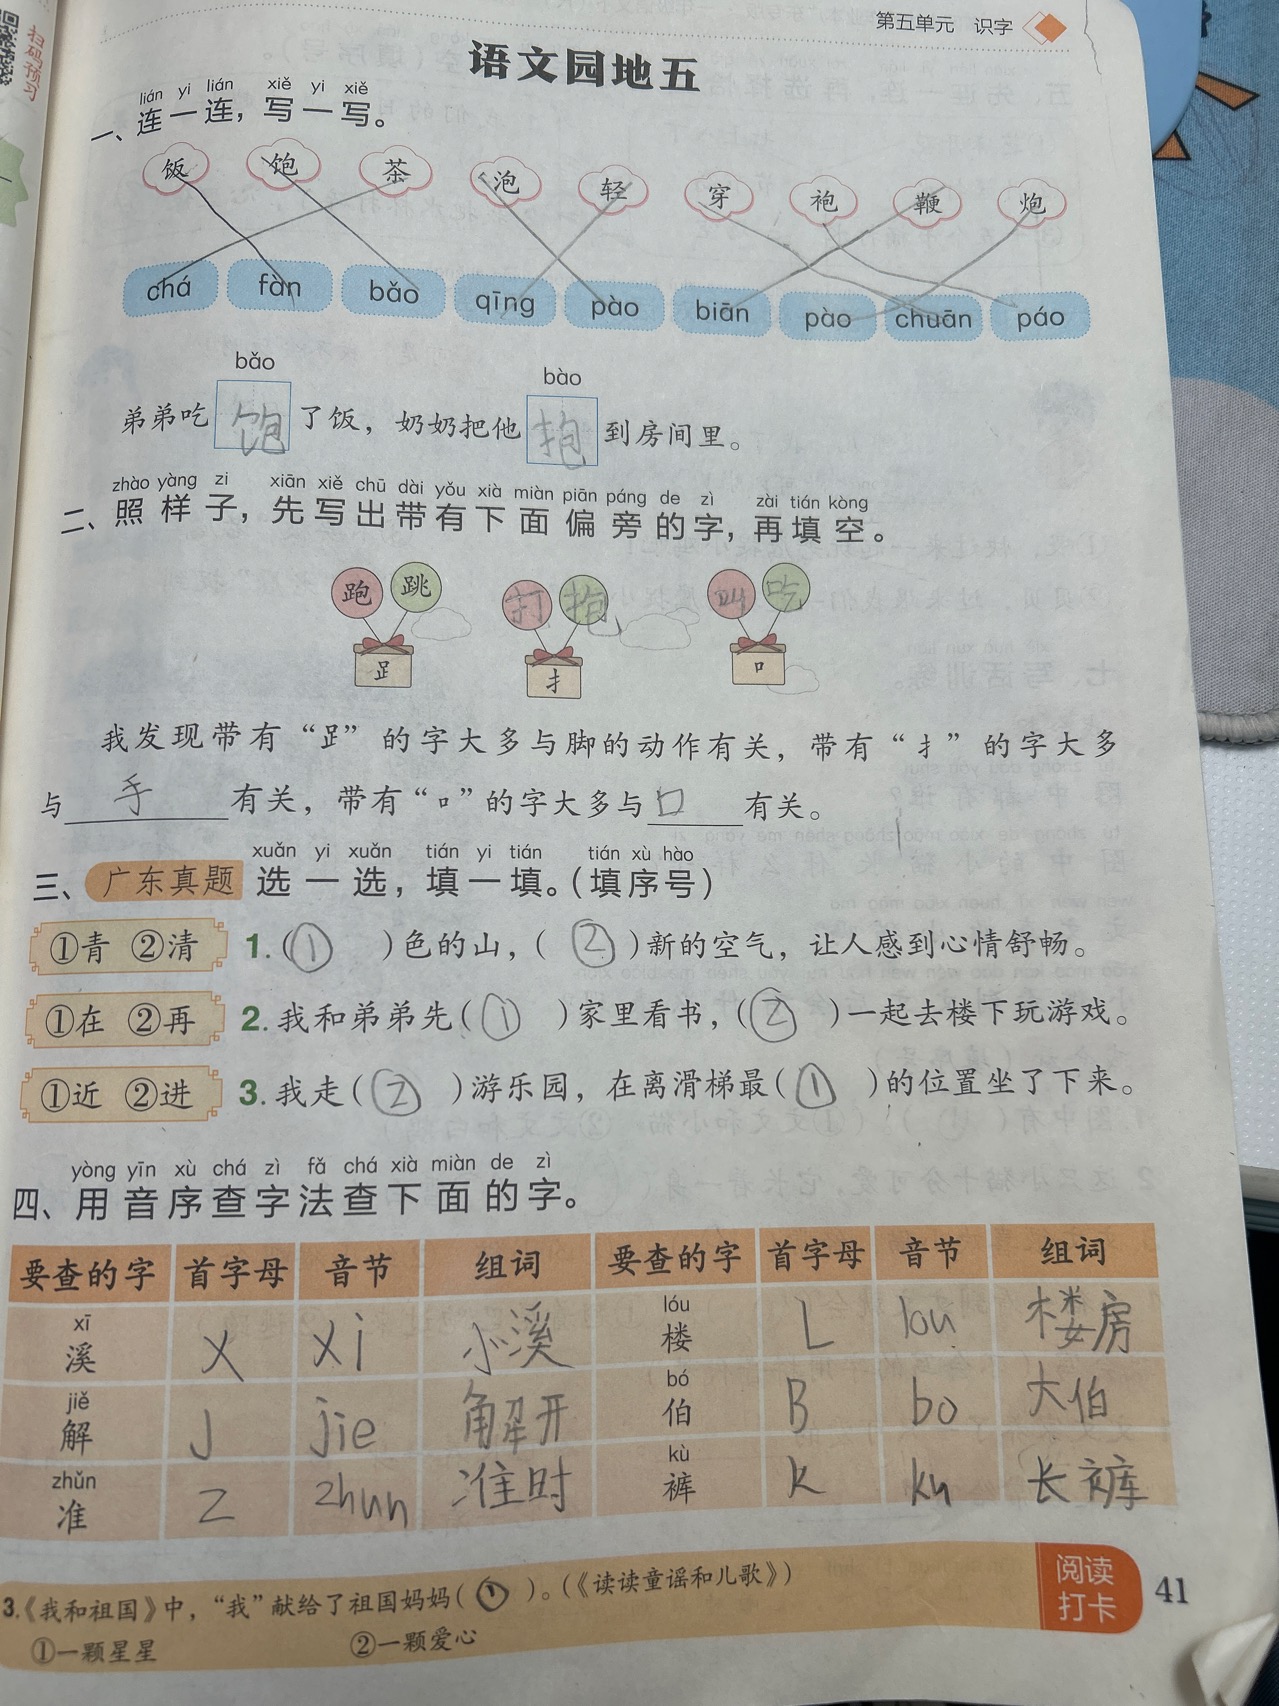 扫码预习
第五单元 识字
语文园地五
lián yi lián xiě yi xiě
一、连一连，写一写。
饭 饱 茶 泡 轻 穿 袍 鞭 炮
chá fàn bǎo qīng pào biān pào chuān páo
bǎo bào
弟弟吃饱了饭，奶奶把他抱到房间里。
zhào yàng zi xiān xiě chū dài yǒu xià miàn piān páng de zì zài tián kòng
二、照样子，先写出带有下面偏旁的字，再填空。
跑 跳 打 抱 叫 吃
𧾷 扌 口
我发现带有“𧾷”的字大多与脚的动作有关，带有“扌”的字大多
与手有关，带有“口”的字大多与口有关。
xuǎn yi xuǎn tián yi tián tián xù hào
三、广东真题 选一选，填一填。（填序号）
①青 ②清 1.（①）色的山，（②）新的空气，让人感到心情舒畅。
①在 ②再 2.我和弟弟先（①）家里看书，（②）一起去楼下玩游戏。
①近 ②进 3.我走（②）游乐园，在离滑梯最（①）的位置坐了下来。
yòng yīn xù chá zì fǎ chá xià miàn de zì
四、用音序查字法查下面的字。
要查的字 首字母 音节 组词 要查的字 首字母 音节 组词
xī lóu
溪 X xi 小溪 楼 L lou 楼房
jiě bó
解 J jie 解开 伯 B bo 大伯
zhǔn kù
准 Z zhun 准时 裤 K ku 长裤
3.《我和祖国》中，“我”献给了祖国妈妈（①）。（《读读童谣和儿歌》）
①一颗星星 ②一颗爱心
阅读
打卡
41